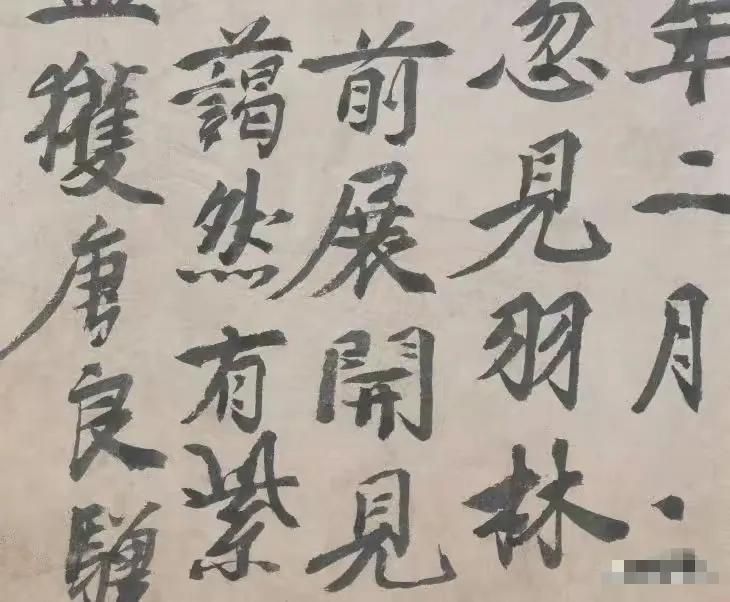 年二月
忽見羽林
前展開見
藹然有紫
獲唐良驥